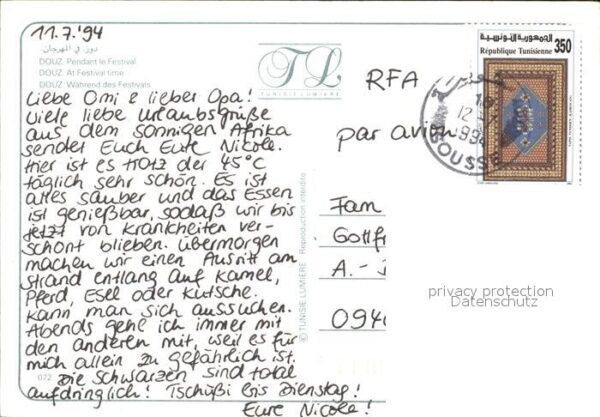 11.7.'94
دوز في المهرجان
DOUZ. Pendant le Festival
DOUZ. At Festival time
DOUZ. Während des Festivals
Liebe Omi & lieber Opa!
Viele liebe Urlaubsgrüße
aus dem sonnigen Afrika
sendet Euch Eure Nicole.
Hier ist es trotz der 45°C
täglich sehr schön. Es ist
alles sauber und das Essen
ist genießbar, sodaß wir bis
jetzt von Krankheiten ver-
schont blieben. Übermorgen
machen wir einen Ausritt am
Strand entlang auf Kamel,
Pferd, Esel oder Kutsche.
Kann man sich aussuchen.
Abends gehe ich immer mit
den anderen mit, weil es für
mich allein zu gefährlich ist.
Die Schwarzen sind total
aufdringlich! Tschüßi bis Dienstag!
Eure Nicole!
072
TL
TUNISIE LUMIERE
© TUNISIE LUMIERE Reproduction interdite
RFA
par avion
الجمهورية التونسية
République Tunisienne
350
12
SOUSSE
Fam
Gottfr
A.-
094
privacy protection
Datenschutz